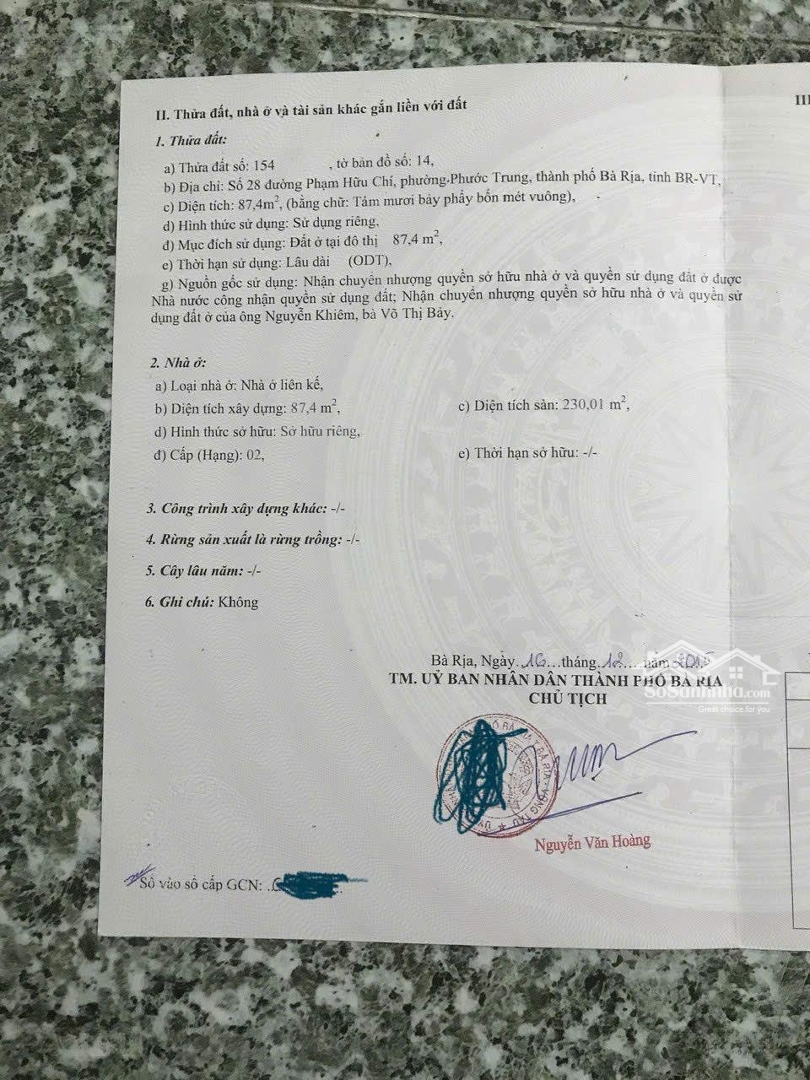 II. Thửa đất, nhà ở và tài sản khác gắn liền với đất
III
1. Thửa đất:
a) Thửa đất số: 154 , tờ bản đồ số: 14,
b) Địa chỉ: Số 28 đường Phạm Hữu Chí, phường Phước Trung, thành phố Bà Rịa, tỉnh BR-VT,
c) Diện tích: 87,4m², (bằng chữ: Tám mươi bảy phẩy bốn mét vuông),
d) Hình thức sử dụng: Sử dụng riêng,
đ) Mục đích sử dụng: Đất ở tại đô thị 87,4 m²,
e) Thời hạn sử dụng: Lâu dài (ODT),
g) Nguồn gốc sử dụng: Nhận chuyển nhượng quyền sở hữu nhà ở và quyền sử dụng đất ở được
Nhà nước công nhận quyền sử dụng đất; Nhận chuyển nhượng quyền sở hữu nhà ở và quyền sử
dụng đất ở của ông Nguyễn Khiêm, bà Võ Thị Bảy.
2. Nhà ở:
a) Loại nhà ở: Nhà ở liên kế,
b) Diện tích xây dựng: 87,4 m², c) Diện tích sàn: 230,01 m²,
d) Hình thức sở hữu: Sở hữu riêng,
đ) Cấp (Hạng): 02, e) Thời hạn sở hữu: -/-
3. Công trình xây dựng khác: -/-
4. Rừng sản xuất là rừng trồng: -/-
5. Cây lâu năm: -/-
6. Ghi chú: Không
Bà Rịa, Ngày 16 tháng 12 năm 2015
TM. UỶ BAN NHÂN DÂN THÀNH PHỐ BÀ RỊA
CHỦ TỊCH
SoSanhnha.com
Great choice for you
Nguyễn Văn Hoàng
Số vào sổ cấp GCN: